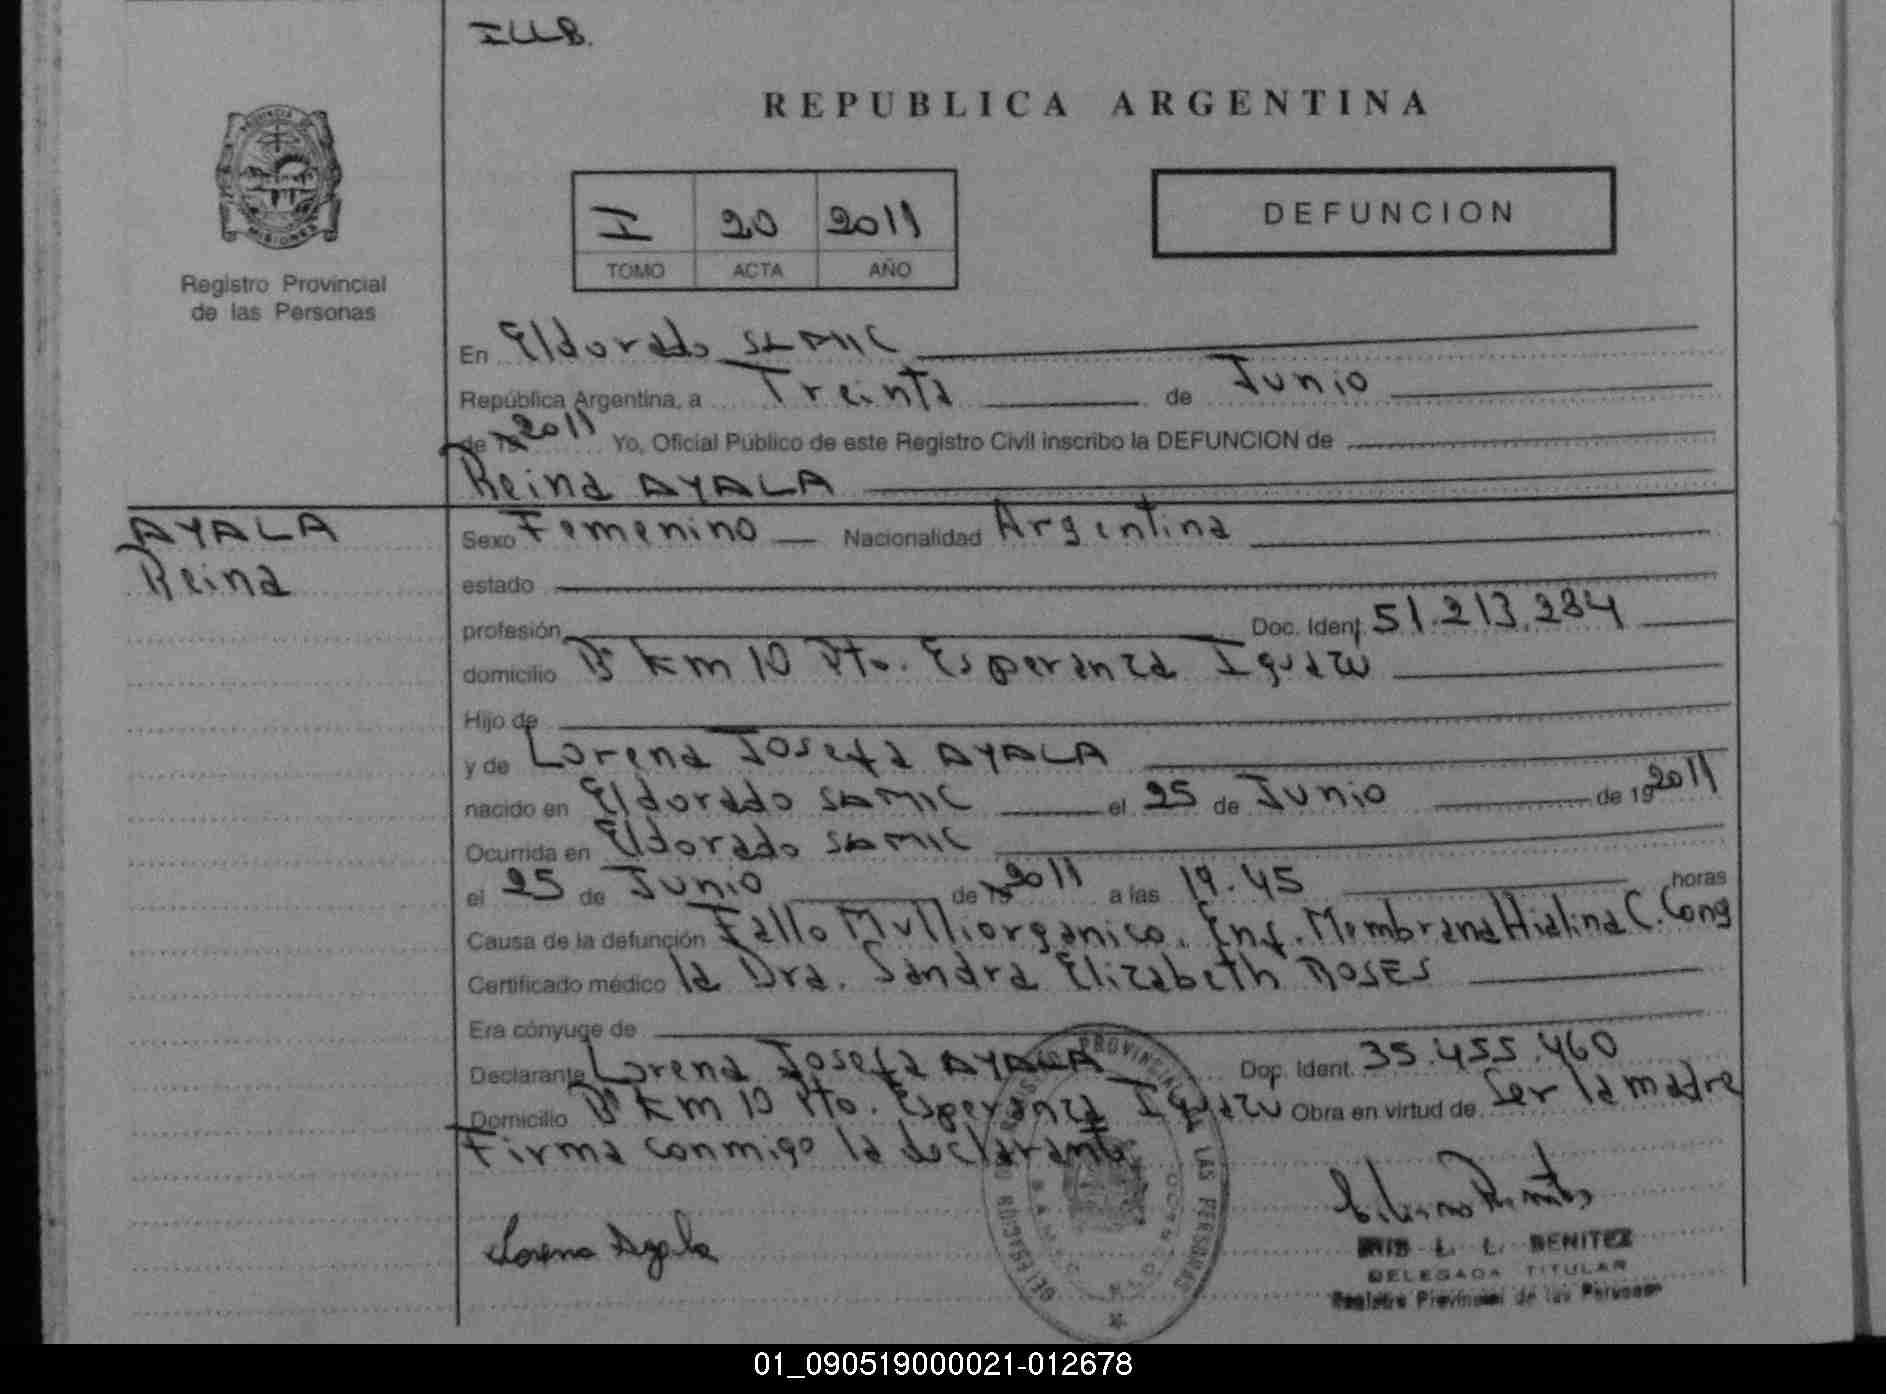 ILLB.
REPUBLICA ARGENTINA
PROVINCIA DE
MISIONES
Registro Provincial
de las Personas
I 20 2011
TOMO ACTA AÑO
DEFUNCION
En Eldorado SAMIC
República Argentina, a Treinta de Junio
de 19 2011 Yo, Oficial Público de este Registro Civil inscribo la DEFUNCION de
Reina AYALA
AYALA
Reina
Sexo Femenino Nacionalidad Argentina
estado
profesión Doc. Ident. 51.213.284
domicilio Bº Km 10 Pto. Esperanza Iguazú
Hijo de
y de Lorena Josefa AYALA
nacido en Eldorado SAMIC el 25 de Junio de 19 2011
Ocurrida en Eldorado SAMIC
el 25 de Junio de 19 2011 a las 19.45 horas
Causa de la defunción Fallo Multiorganico. Enf. Membrana Hialina C. Cong
Certificado médico la Dra. Sandra Elizabeth ROSES
Era cónyuge de
Declarante Lorena Josefa AYALA Doc. Ident. 35.455.460
Domicilio Bº Km 10 Pto. Esperanza Iguazú Obra en virtud de Ser la madre
Firma conmigo la declarante
Lorena Ayala
PROVINCIAL DE LAS PERSONAS
L. L. BENITEZ
DELEGADA TITULAR
Registro Provincial de las Personas
01_090519000021-012678